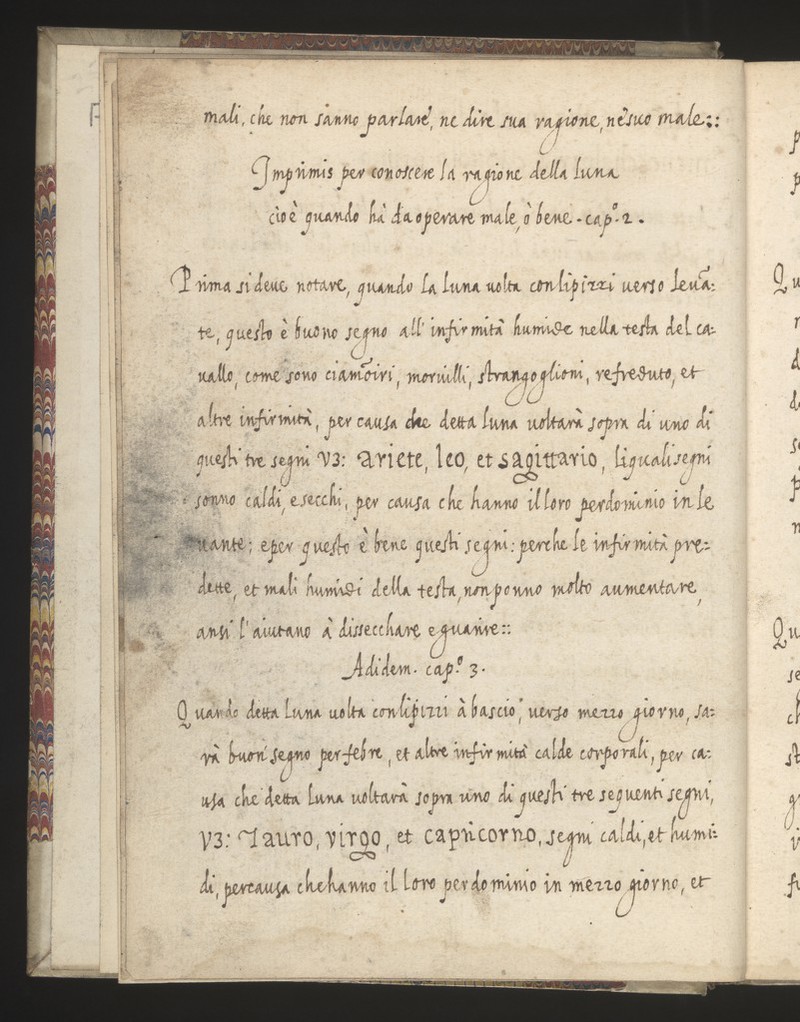 mali, che non sanno parlare, ne dire sua ragione, ne suo male::
Imprimis per conoscere la ragione della luna
cioè quando hà da operare male, ò bene - cap.º 2.
Prima si deue notare, quando la luna uolta con li pizzi uerso leuā:
te, questo è buono segno all' infirmità humide nella testa del ca:
uallo, come sono ciamoiri, moruilli, strangoglioni, refreduto, et
altre infirmità, per causa che detta luna uoltarà sopra di uno di
questi tre segni V3: ariete, leo, et sagittario, li quali segni
sonno caldi, e secchi, per causa che hanno il loro perdominio in le
uante; e per questo è bene questi segni: perche le infirmità pre:
dette, et mali humidi della testa, non ponno molto aumentare,
ansi l'aiutano à dissecchare e guarire::
Adidem. cap.º 3.
Quando detta luna uolta con li pizzi à bascio, uerso mezzo giorno, sa:
rà buon segno per febre, et altre infirmità calde corporali, per ca:
usa che detta luna uoltarà sopra uno di questi tre seguenti segni,
V3: Tauro, virgo, et capricorno, segni caldi, et humi:
di, per causa che hanno il loro perdominio in mezzo giorno, et